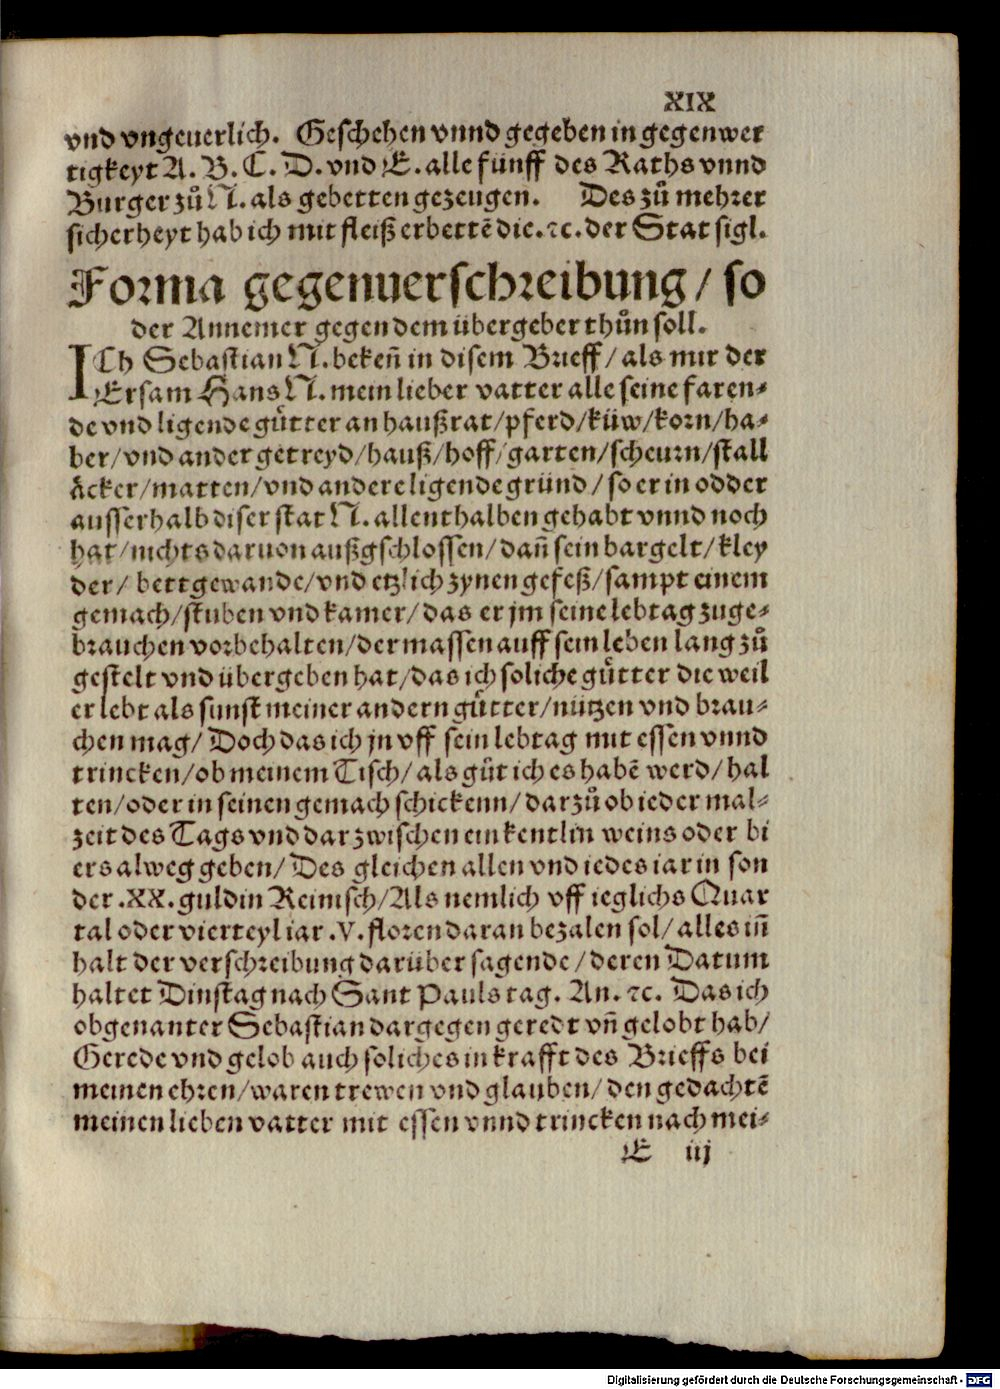 XIX
vnd vngeuerlich. Geschehen vnnd gegeben in gegenwer
tigkeyt A. B. C. D. vnd E. alle fünff des Raths vnnd
Burger zů N. als gebetten gezeugen. Des zů mehrer
sicherheyt hab ich mit fleiß erbettē die. ꝛc. der Stat sigl.
Forma gegenuerschreibung / so
der Annemer gegen dem übergeber thůn soll.
ICh Sebastian N. bekeñ in disem Brieff / als mir der
Ersam Hans N. mein lieber vatter alle seine faren⸗
de vnd ligende gůtter an haußrat/pferd/küw/korn/ha⸗
ber/vnd ander getreyd/hauß/hoff/garten/scheurn/stall
åcker/matten/vnd andere ligende gründ/so er in odder
ausserhalb diser stat N. allenthalben gehabt vnnd noch
hat/nichts daruon außgschlossen/dañ sein bargelt/kley
der/ bettgewande/vnd etzlich zynen gefeß/sampt einem
gemach/stuben vnd kamer/das er jm seine lebtag zuge⸗
brauchen vorbehalten/der massen auff sein leben lang zů
gestelt vnd übergeben hat/das ich soliche gůtter die weil
er lebt als sunst meiner andern gůtter/nützen vnd brau⸗
chen mag/ Doch das ich jn vff sein lebtag mit essen vnnd
trincken/ob meinem Tisch/als gůt ich es habē werd/hal
ten/oder in seinen gemach schickenn/darzů ob ieder mal⸗
zeit des Tags vnd darzwischen ein kentlin weins oder bi
ers alweg geben/ Des gleichen allen vnd iedes iar in son
der .XX. guldin Reinisch/Als nemlich vff ieglichs Quar
tal oder vierteyl iar .V. floren daran bezalen sol/ alles iñ
halt der verschreibung darüber sagende/deren Datum
haltet Dinstag nach Sant Pauls tag. An. ꝛc. Das ich
obgenanter Sebastian dargegen geredt vñ gelobt hab/
Gerede vnd gelob auch soliches in krafft des Brieffs bei
meinen ehren/waren trewen vnd glauben/den gedachtē
meinen lieben vatter mit essen vnnd trincken nach mei⸗
E iij
Digitalisierung gefördert durch die Deutsche Forschungsgemeinschaft - DFG